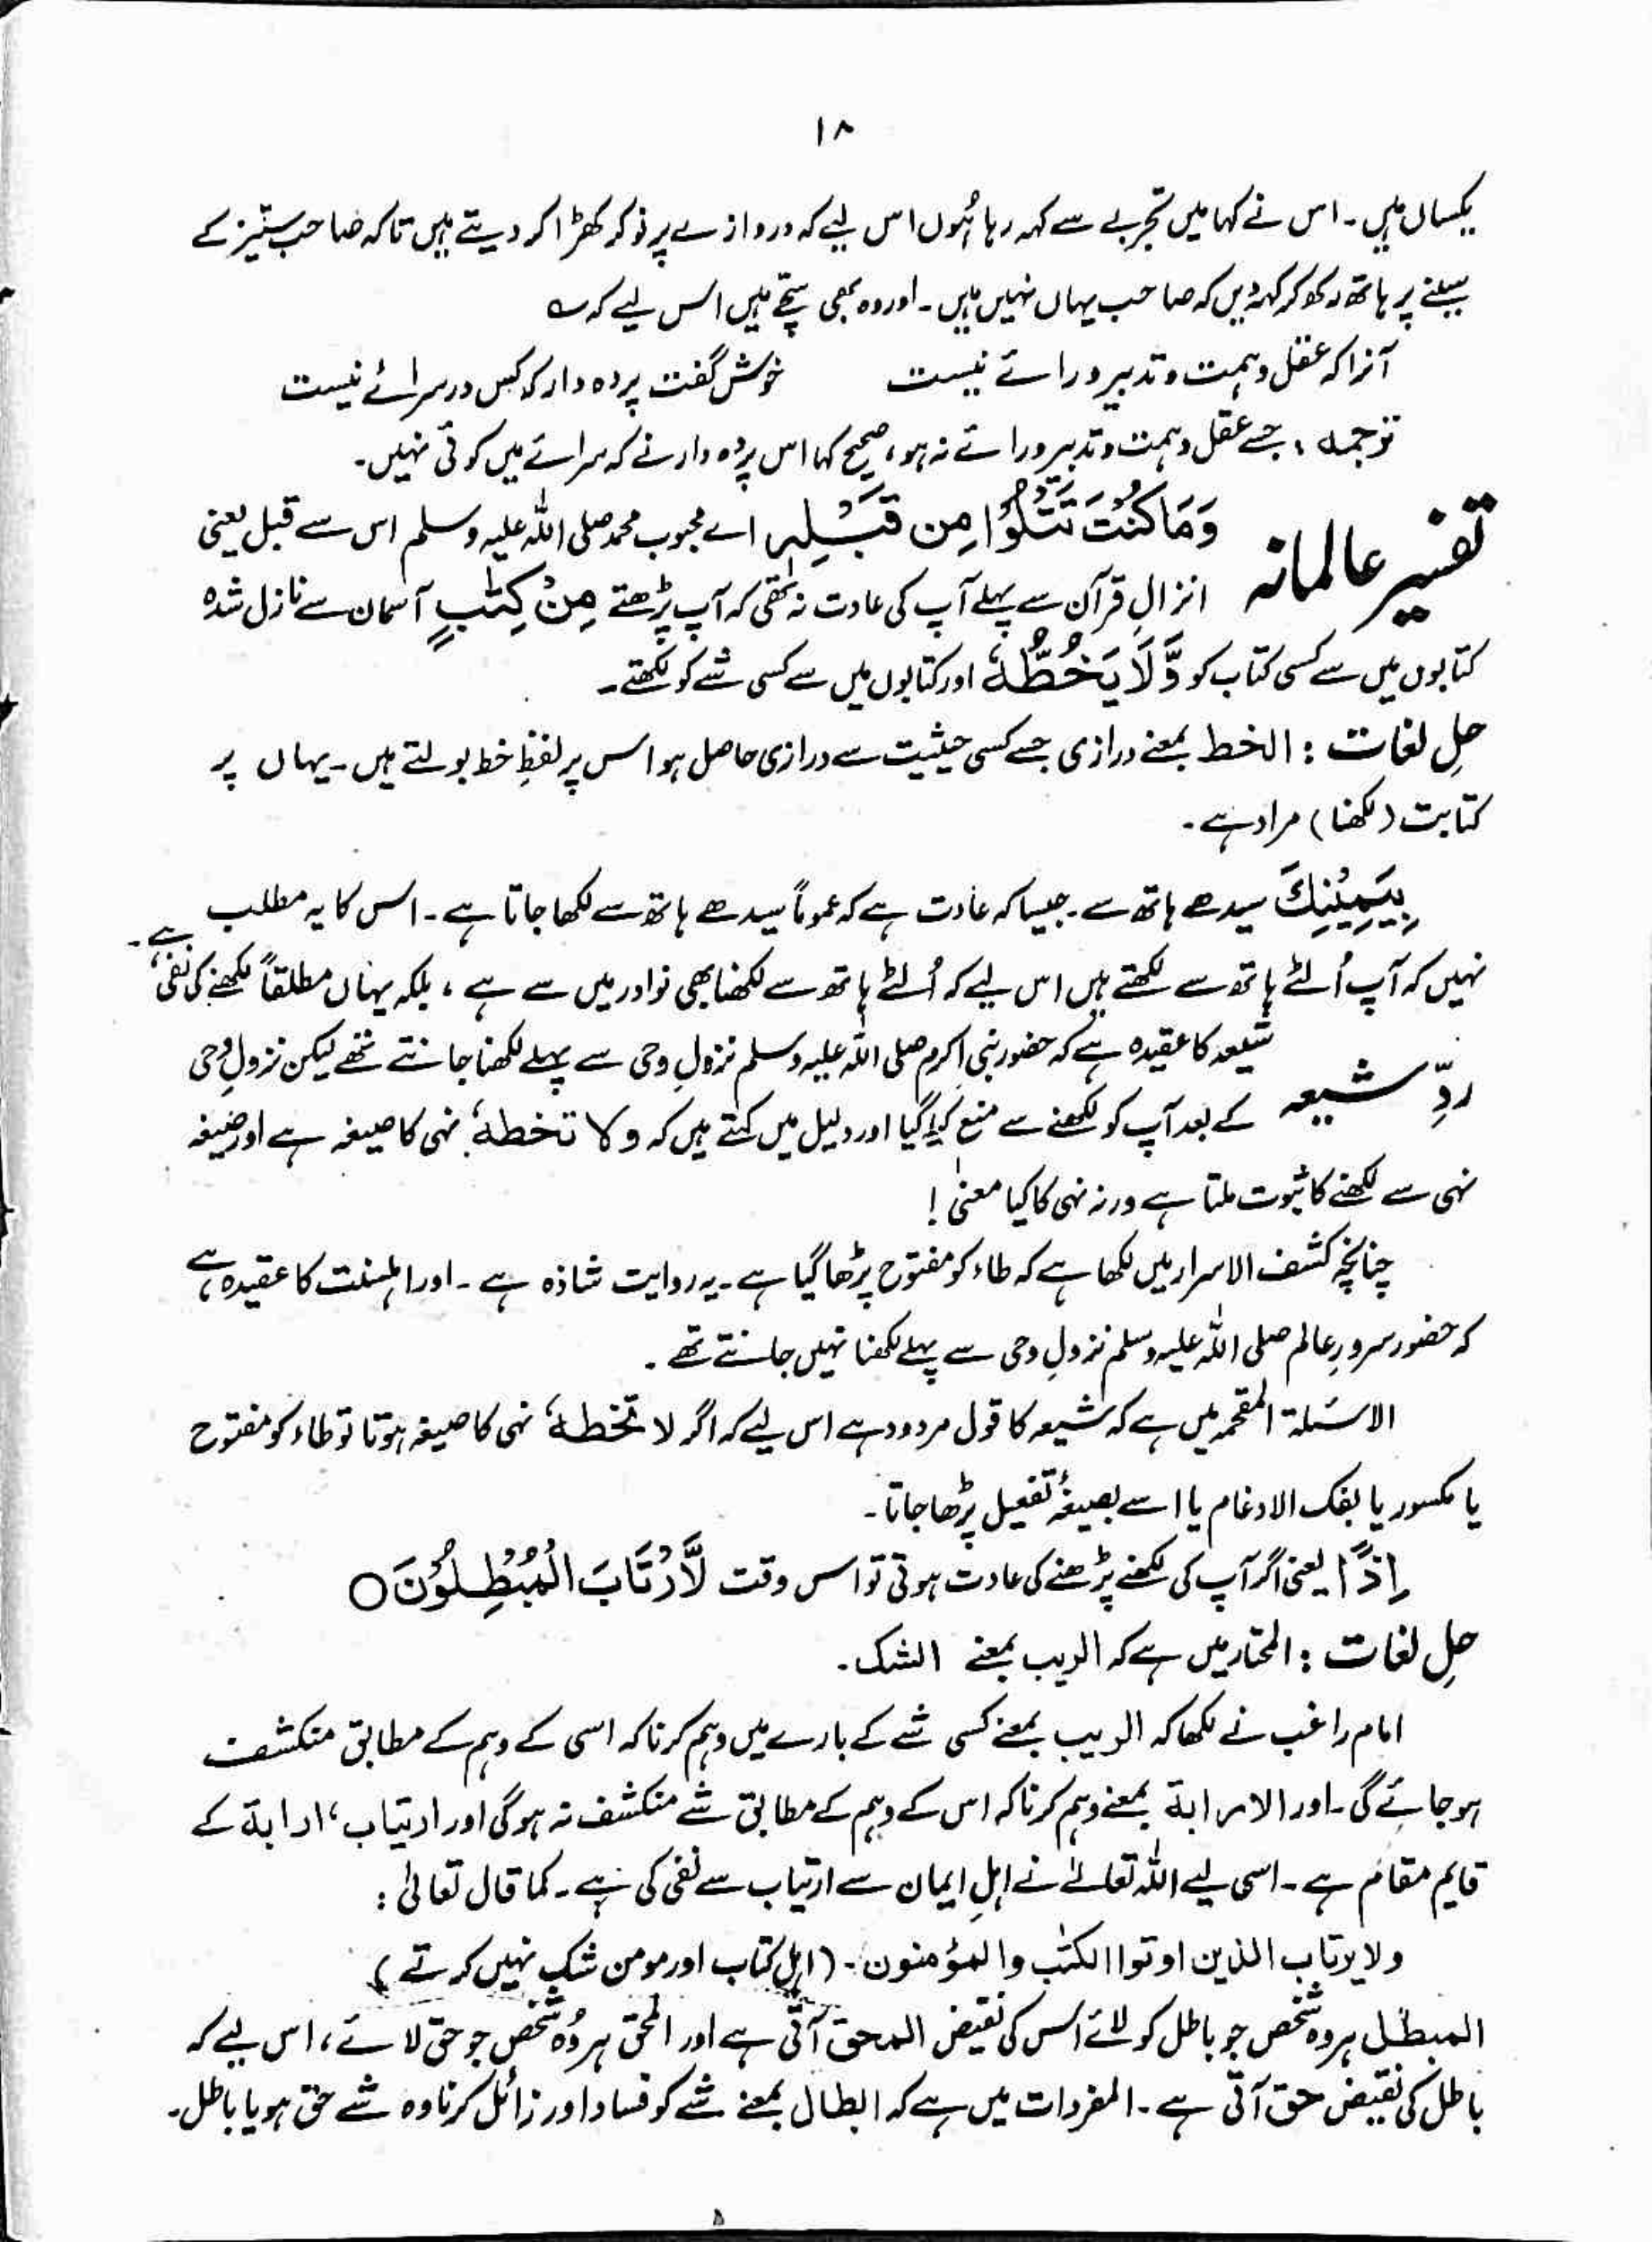 ۱۸
یکساں ہیں۔ اس نے کہا میں تجربے سے کہہ رہا ہُوں اس لیے کہ دروازے پر نوکر کھڑا کر دیتے ہیں تاکہ صاحبِ تمیز کے
سینے پر ہاتھ رکھ کر کہہ دیں کہ صاحب یہاں نہیں ہیں۔ اور وہ بھی سچے ہیں اس لیے کہ ؎
آنرا کہ عقل و ہمت و تدبیر و رائے نیست خوش گفت پردہ دار کہ کس در سرائے نیست
ترجمہ : جسے عقل و ہمت و تدبیر و رائے نہ ہو، صحیح کہا اس پردہ دار نے کہ سرائے میں کوئی نہیں۔
تفسیر عالمانہ وَمَا كُنْتَ تَتْلُوْا مِن قَبْلِهٖ اے محبوب محمد صلی اللہ علیہ وسلم اس سے قبل یعنی
انزالِ قرآن سے پہلے آپ کی عادت نہ تھی کہ آپ پڑھتے مِنْ كِتٰبٍ آسمان سے نازل شدہ
کتابوں میں سے کسی کتاب کو وَّلَا تَخُطُّهٗ اور کتابوں میں سے کسی شے کو لکھتے۔
حلِ لغات : الخط بمعنے درازی جسے کسی حیثیت سے درازی حاصل ہو اس پر لفظِ خط بولتے ہیں۔ یہاں پر
کتابت (لکھنا) مراد ہے۔
بِيَمِيْنِكَ سیدھے ہاتھ سے۔ جیسا کہ عادت ہے کہ عموماً سیدھے ہاتھ سے لکھا جاتا ہے۔ اس کا یہ مطلب
نہیں کہ آپ اُلٹے ہاتھ سے لکھتے ہیں اس لیے کہ اُلٹے ہاتھ سے لکھنا بھی نوادر میں سے ہے، بلکہ یہاں مطلقاً لکھنے کی نفی ہے۔
ردِّ شیعہ شیعہ کا عقیدہ ہے کہ حضور نبی اکرم صلی اللہ علیہ وسلم نزولِ وحی سے پہلے لکھنا جانتے تھے لیکن نزولِ وحی
کے بعد آپ کو لکھنے سے منع کیا گیا اور دلیل میں کہتے ہیں کہ ولا تخطهٗ نہی کا صیغہ ہے اور صیغہ
نہی سے لکھنے کا ثبوت ملتا ہے ورنہ نہی کا کیا معنیٰ!
چنانچہ کشف الاسرار میں لکھا ہے کہ طاء کو مفتوح پڑھا گیا ہے۔ یہ روایت شاذہ ہے۔ اور اہلسنت کا عقیدہ ہے
کہ حضور سرورِ عالم صلی اللہ علیہ وسلم نزولِ وحی سے پہلے لکھنا نہیں جانتے تھے۔
الاسئلۃ المقحمہ میں ہے کہ شیعہ کا قول مردود ہے اس لیے کہ اگر لا تخطهٗ نہی کا صیغہ ہوتا تو طاء کو مفتوح
یا مکسور یا بفک الادغام یا اسے بصیغۂ تفعیل پڑھا جاتا۔
اِذًا یعنی اگر آپ کی لکھنے پڑھنے کی عادت ہوتی تو اس وقت لَّارْتَابَ الْمُبْطِلُوْنَ ○
حلِ لغات : المختار میں ہے کہ الریب بمعنے الشک۔
امام راغب نے لکھا کہ الریب بمعنے کسی شے کے بارے میں وہم کرنا کہ اسی کے وہم کے مطابق منکشف
ہو جائے گی۔ اور الارابۃ بمعنے وہم کرنا کہ اس کے وہم کے مطابق شے منکشف نہ ہوگی اور ارتیاب، ارابۃ کے
قایم مقام ہے۔ اسی لیے اللہ تعالےٰ نے اہلِ ایمان سے ارتیاب سے نفی کی ہے۔ کما قال تعالیٰ :
ولا یرتاب الذین اوتوا الکتٰب والمؤمنون۔ (اہلِ کتاب اور مومن شک نہیں کرتے)
المبطل ہر وہ شخص جو باطل کو لائے اس کی نقیض المحق آتی ہے اور المحق ہر وُہ شخص جو حق لائے، اس لیے کہ
باطل کی نقیض حق آتی ہے۔ المفردات میں ہے کہ ابطال بمعنے شے کو فساد اور زائل کرنا وہ شے حق ہو یا باطل۔